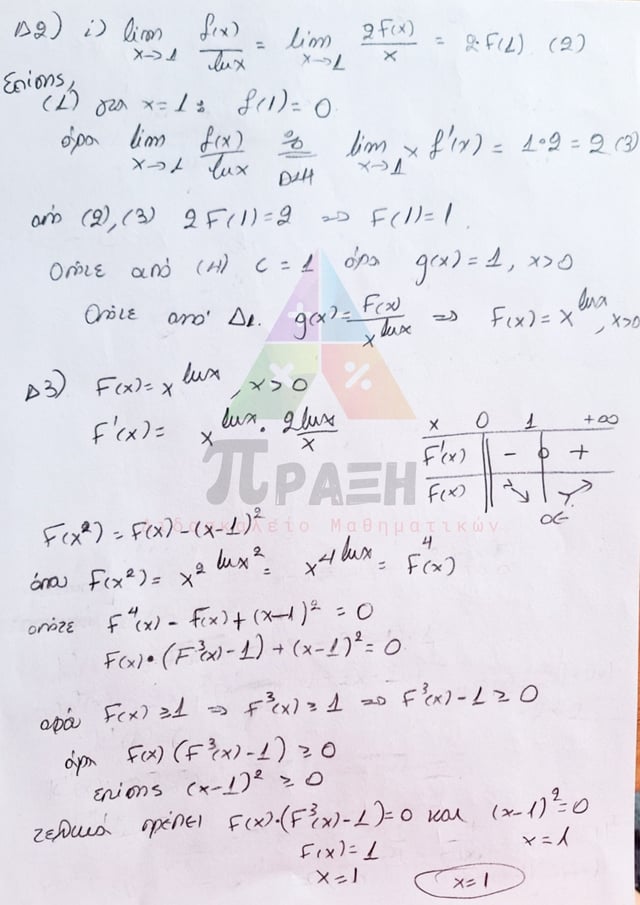 Δ2) i) lim x→1 f(x)/lnx = lim x→1 2F(x)/x = 2F(1) (2)
Επίσης,
(1) για x=1: f(1)=0
άρα lim x→1 f(x)/lnx 0/0 = DLH lim x→1 x f'(x) = 1·2 = 2 (3)
από (2),(3) 2F(1)=2 ⇒ F(1)=1.
Οπότε από (4) c=1 άρα g(x)=1, x>0
Οπότε από Δ1. g(x)=F(x)/x^lnx ⇒ F(x)=x^lnx, x>0
Δ3) F(x)=x^lnx, x>0
F'(x)= x^lnx · 2lnx/x
x 0 1 +∞
F'(x) - 0 +
F(x) ↘ ↗
ΟΕ
ΠΡΑΞΗ
Διδασκαλείο Μαθηματικών
F(x²)=F(x)-(x-1)²
όπου F(x²)= x^2 lnx² = x^4 lnx = F⁴(x)
οπότε F⁴(x)-F(x)+(x-1)²=0
F(x)·(F³(x)-1)+(x-1)²=0
αφού F(x)≥1 ⇒ F³(x)≥1 ⇒ F³(x)-1≥0
άρα F(x)(F³(x)-1)≥0
επίσης (x-1)²≥0
τελικά πρέπει F(x)·(F³(x)-1)=0 και (x-1)²=0
F(x)=1 x=1
x=1 x=1